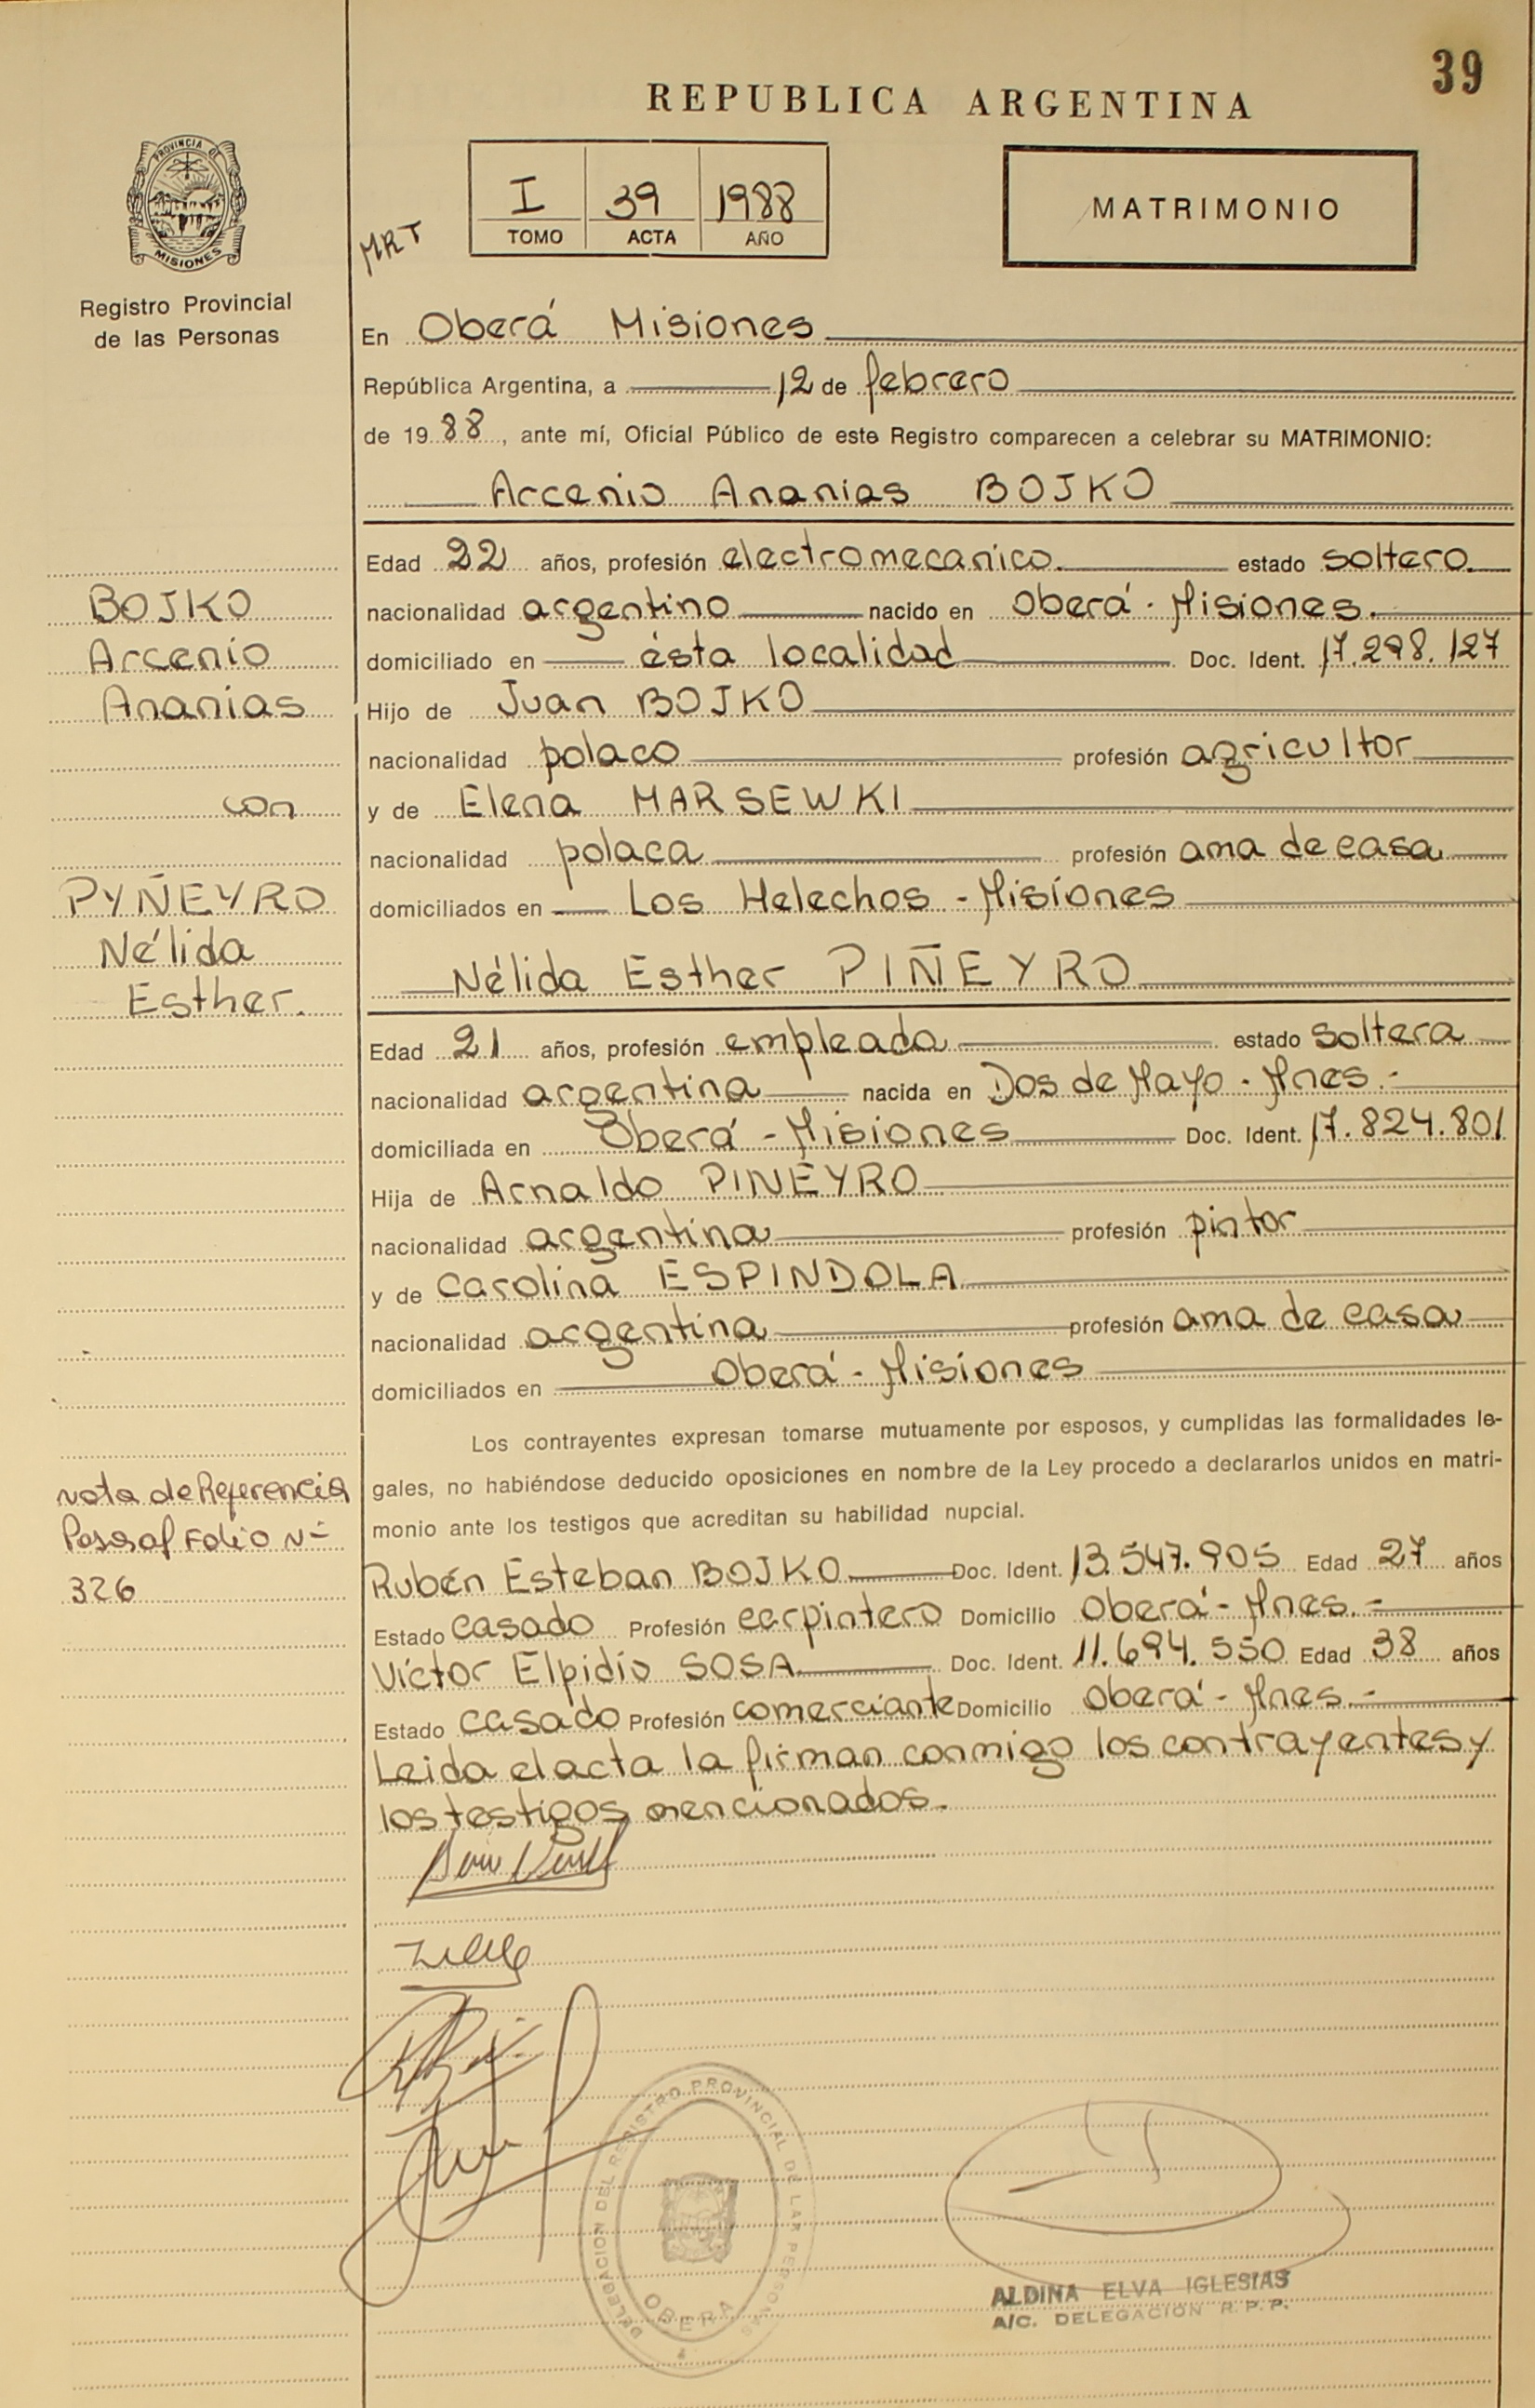 39
REPUBLICA ARGENTINA
PROVINCIA DE
MISIONES
Registro Provincial
de las Personas
MRT
I 39 1988
TOMO ACTA AÑO
MATRIMONIO
En Oberá Misiones
República Argentina, a 12 de febrero
de 1988, ante mí, Oficial Público de este Registro comparecen a celebrar su MATRIMONIO:
Arcenio Ananias BOJKO
Edad 22 años, profesión electromecanico. estado soltero.
nacionalidad argentino nacido en Oberá - Misiones.
domiciliado en ésta localidad Doc. Ident. 17.298.127
Hijo de Juan BOJKO
nacionalidad polaco profesión agricultor
y de Elena MARSEWKI
nacionalidad polaca profesión ama de casa
domiciliados en Los Helechos - Misiones
BOJKO
Arcenio
Ananias
con
PYÑEYRO
Nélida
Esther.
Nélida Esther PIÑEYRO
Edad 21 años, profesión empleada estado soltera
nacionalidad argentina nacida en Dos de Mayo - Mnes.-
domiciliada en Oberá - Misiones Doc. Ident. 17.824.801
Hija de Arnaldo PIÑEYRO
nacionalidad argentina profesión pintor
y de Carolina ESPINDOLA
nacionalidad argentina profesión ama de casa
domiciliados en Oberá - Misiones
Los contrayentes expresan tomarse mutuamente por esposos, y cumplidas las formalidades le-
gales, no habiéndose deducido oposiciones en nombre de la Ley procedo a declararlos unidos en matri-
monio ante los testigos que acreditan su habilidad nupcial.
Nota de Referencia
Pasa al Folio Nº
326
Rubén Esteban BOJKO Doc. Ident. 13.547.905 Edad 27 años
Estado casado Profesión carpintero Domicilio Oberá - Mnes.-
Víctor Elpidio SOSA Doc. Ident. 11.694.550 Edad 38 años
Estado casado Profesión comerciante Domicilio Oberá - Mnes.-
Leida el acta la firman conmigo los contrayentes y
los testigos mencionados.
DELEGACION DEL REGISTRO PROVINCIAL DE LAS PERSONAS
OBERA
ALDINA ELVA IGLESIAS
A/C. DELEGACION R.P.P.